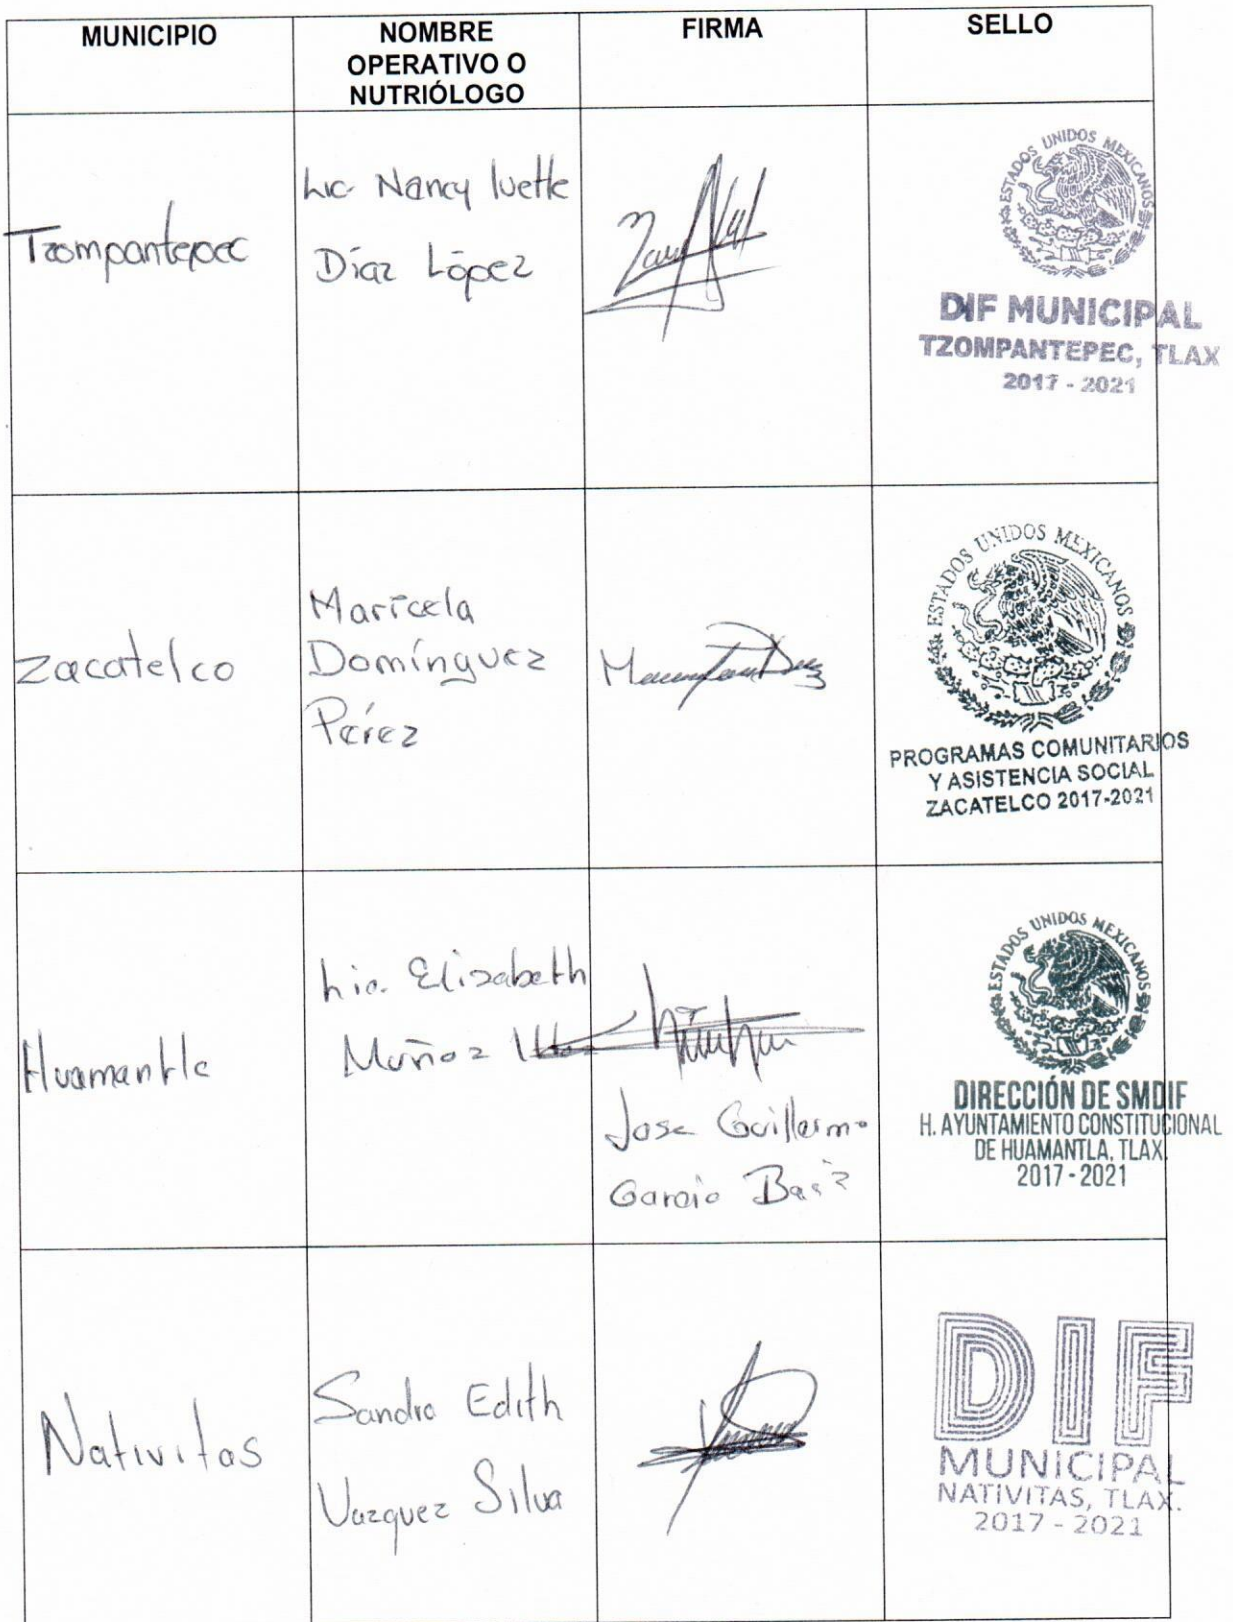 MUNICIPIO
NOMBRE
OPERATIVO O
NUTRIÓLOGO
FIRMA
SELLO
Tzompantepec
Lic. Nancy Ivette
Díaz López
ESTADOS UNIDOS MEXICANOS
DIF MUNICIPAL
TZOMPANTEPEC, TLAX
2017 - 2021
Zacatelco
Maricela
Domínguez
Pérez
ESTADOS UNIDOS MEXICANOS
PROGRAMAS COMUNITARIOS
Y ASISTENCIA SOCIAL
ZACATELCO 2017-2021
Huamantla
Lic. Elizabeth
Muñoz
Jose Guillermo
Garcia
ESTADOS UNIDOS MEXICANOS
DIRECCIÓN DE SMDIF
H. AYUNTAMIENTO CONSTITUCIONAL
DE HUAMANTLA, TLAX.
2017 - 2021
Nativitas
Sandra Edith
Vazquez Silva
DIF
MUNICIPAL
NATIVITAS, TLAX.
2017 - 2021